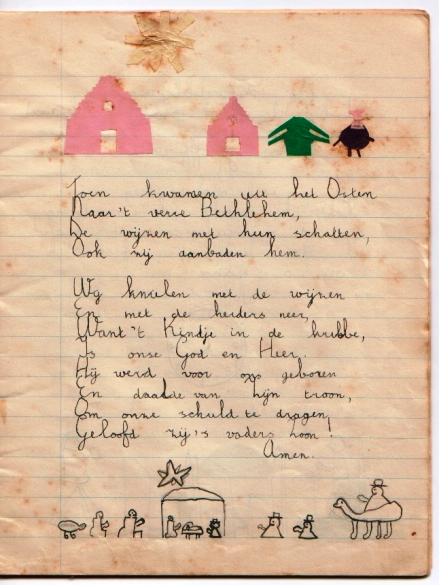 Toen kwamen uit het Osten
Naar't verre Bethlehem,
De wijzen met hun schatten,
Ook zij aanbaden hem.
Wij knielen met de wijzen
En met de herders neer,
Want't Kindje in de kribbe,
Is onse God en Heer.
Hij werd voor ons geboren
En daalde van zijn troon,
Om onze schuld te dragen,
Geloofd zij's vaders zoon!
Amen.